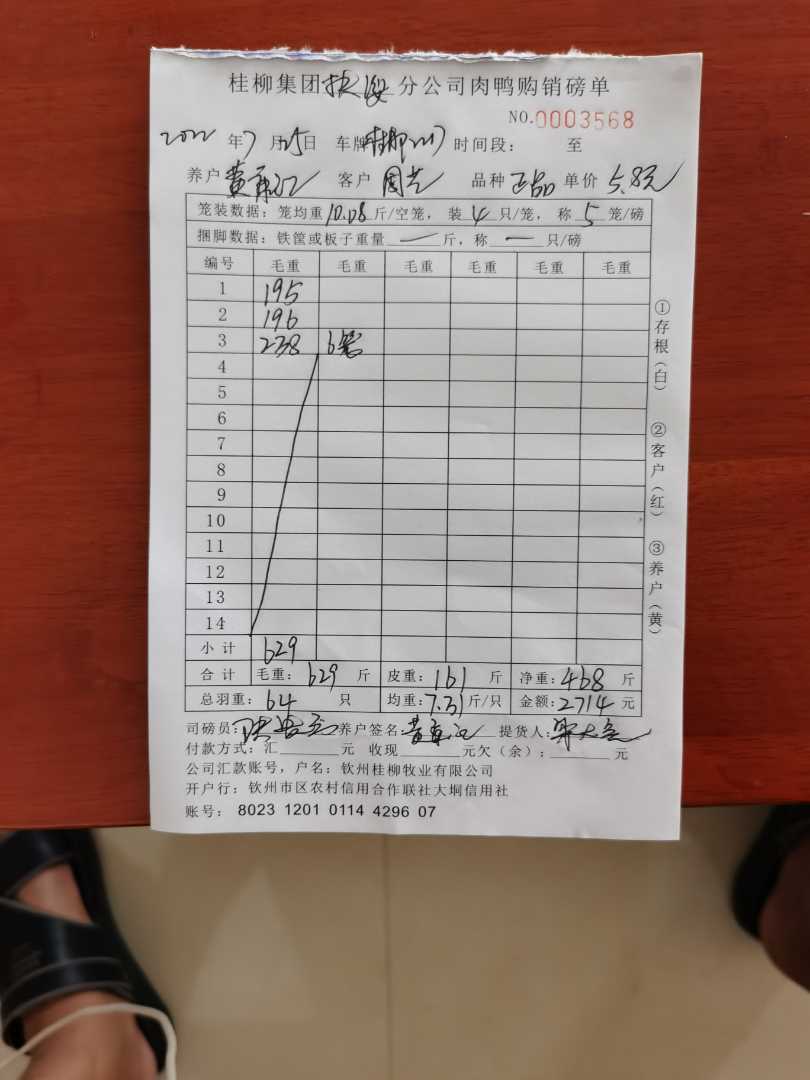 桂柳集团 分公司肉鸭购销磅单
NO.0003568
2022 年7月25日 车牌桂柳 时间段: 至
养户黄 客户周 品种正品 单价5.8元
笼装数据: 笼均重10.08斤/空笼, 装4只/笼, 称5笼/磅
捆脚数据: 铁筐或板子重量—斤, 称—只/磅
编号 毛重 毛重 毛重 毛重 毛重 毛重
1 195
2 196
3 238 6笼
4
5
6
7
8
9
10
11
12
13
14
小计 629
合计 毛重: 629 斤 皮重: 161 斤 净重: 468 斤
总羽重: 64 只 均重: 7.31斤/只 金额: 2714 元
司磅员: 养户签名: 黄 提货人:
付款方式: 汇 元 收现 元欠(余): 元
公司汇款账号, 户名: 钦州桂柳牧业有限公司
开户行: 钦州市区农村信用合作联社大垌信用社
账号: 8023 1201 0114 4296 07
①存根(白) ②客户(红) ③养户(黄)